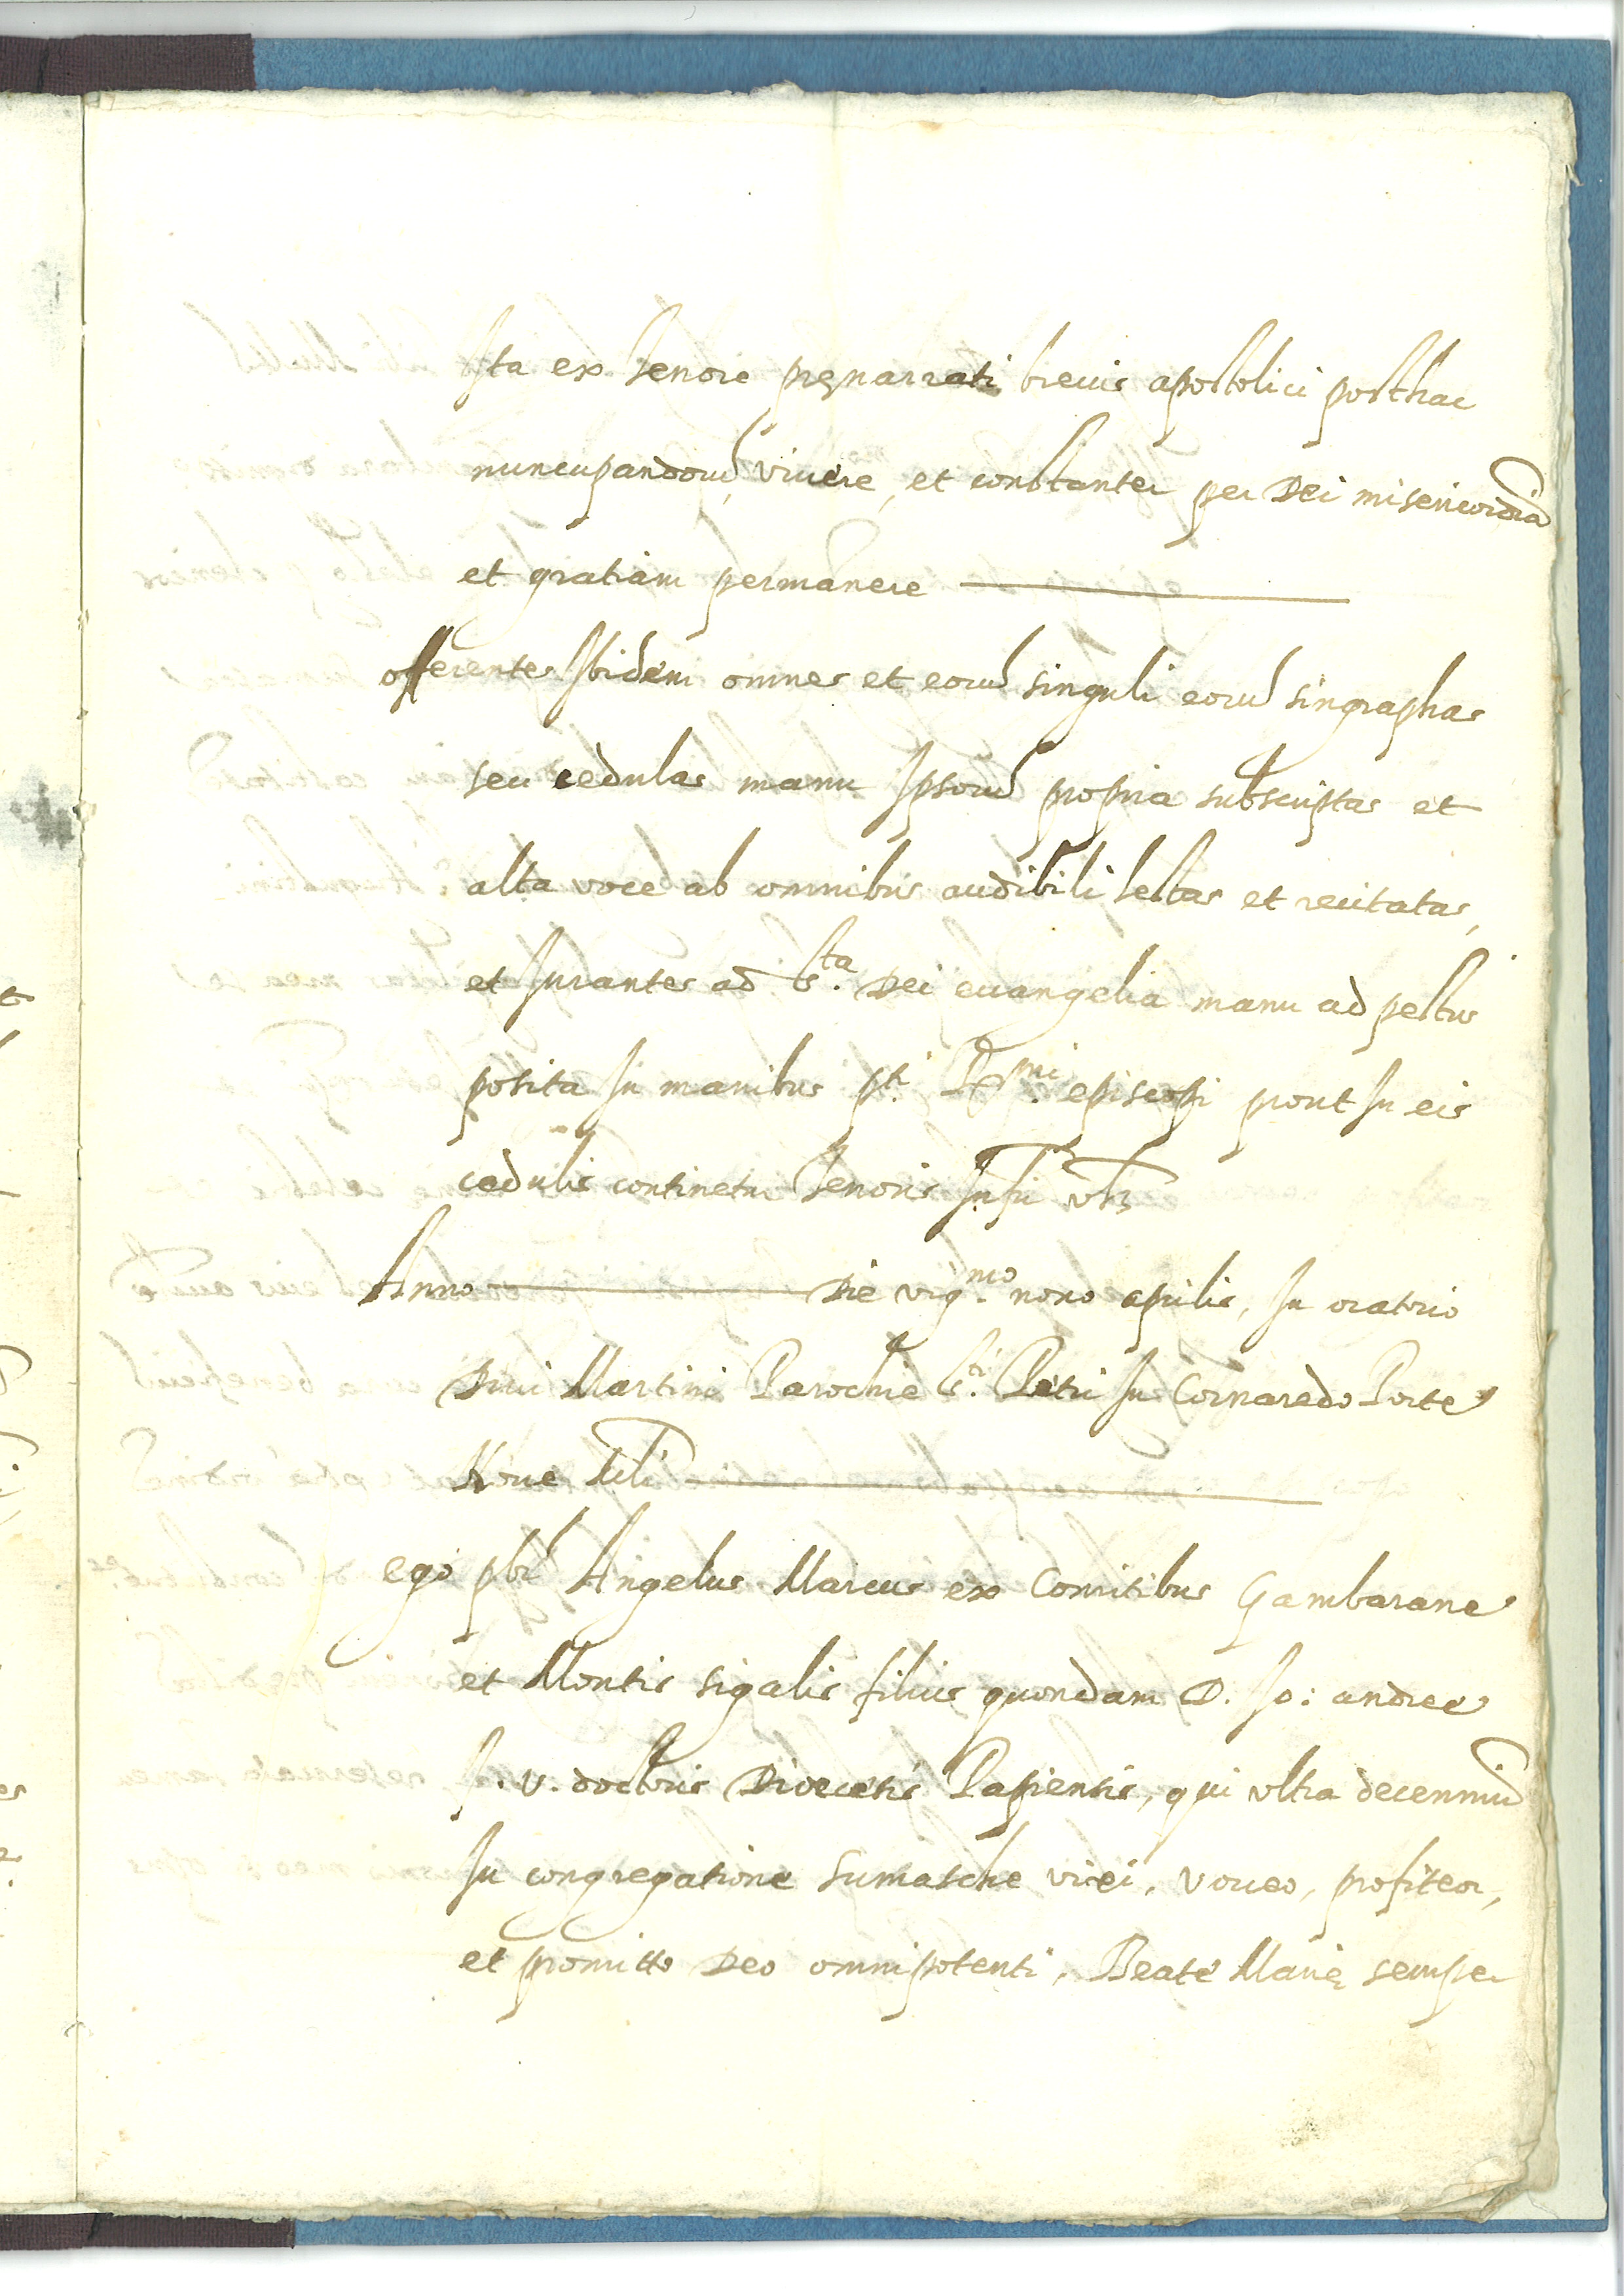 Ita ex tenore pręnarrati breuis apostolici posthac
nuncupandorũ, viuere, et constanter per Dei misericordiã
et gratiam permanere
offerentes Ibidem omnes et eorũ singuli eorũ singraphas
seu cedulas manu Ipsorũ propria subscriptas et
alta voce ab omnibus audibili lectas et recitatas,
et Iurantes ad S.ta Dei euangelia manu ad pectus
posita In manibus p.ti R.mi episcopi prout In eis
cedulis continetur tenoris Infri vtz
Anno Die vig.mo nono aprilis, In oratorio
Diui Martini Parochie S.ti Petri In Cornaredo Porte
Noue Mli
ego pbr Angelus Marcus ex Comitibus Gambarane
et Montis sigalis filius quondam D. Io: andree
I. V. doctoris Diocesis Papiensis, qui vltra decenniũ
In congregatione Sumasche vixi, voueo, profiteor,
et promitto Deo omnipotenti, Beate Marię semper